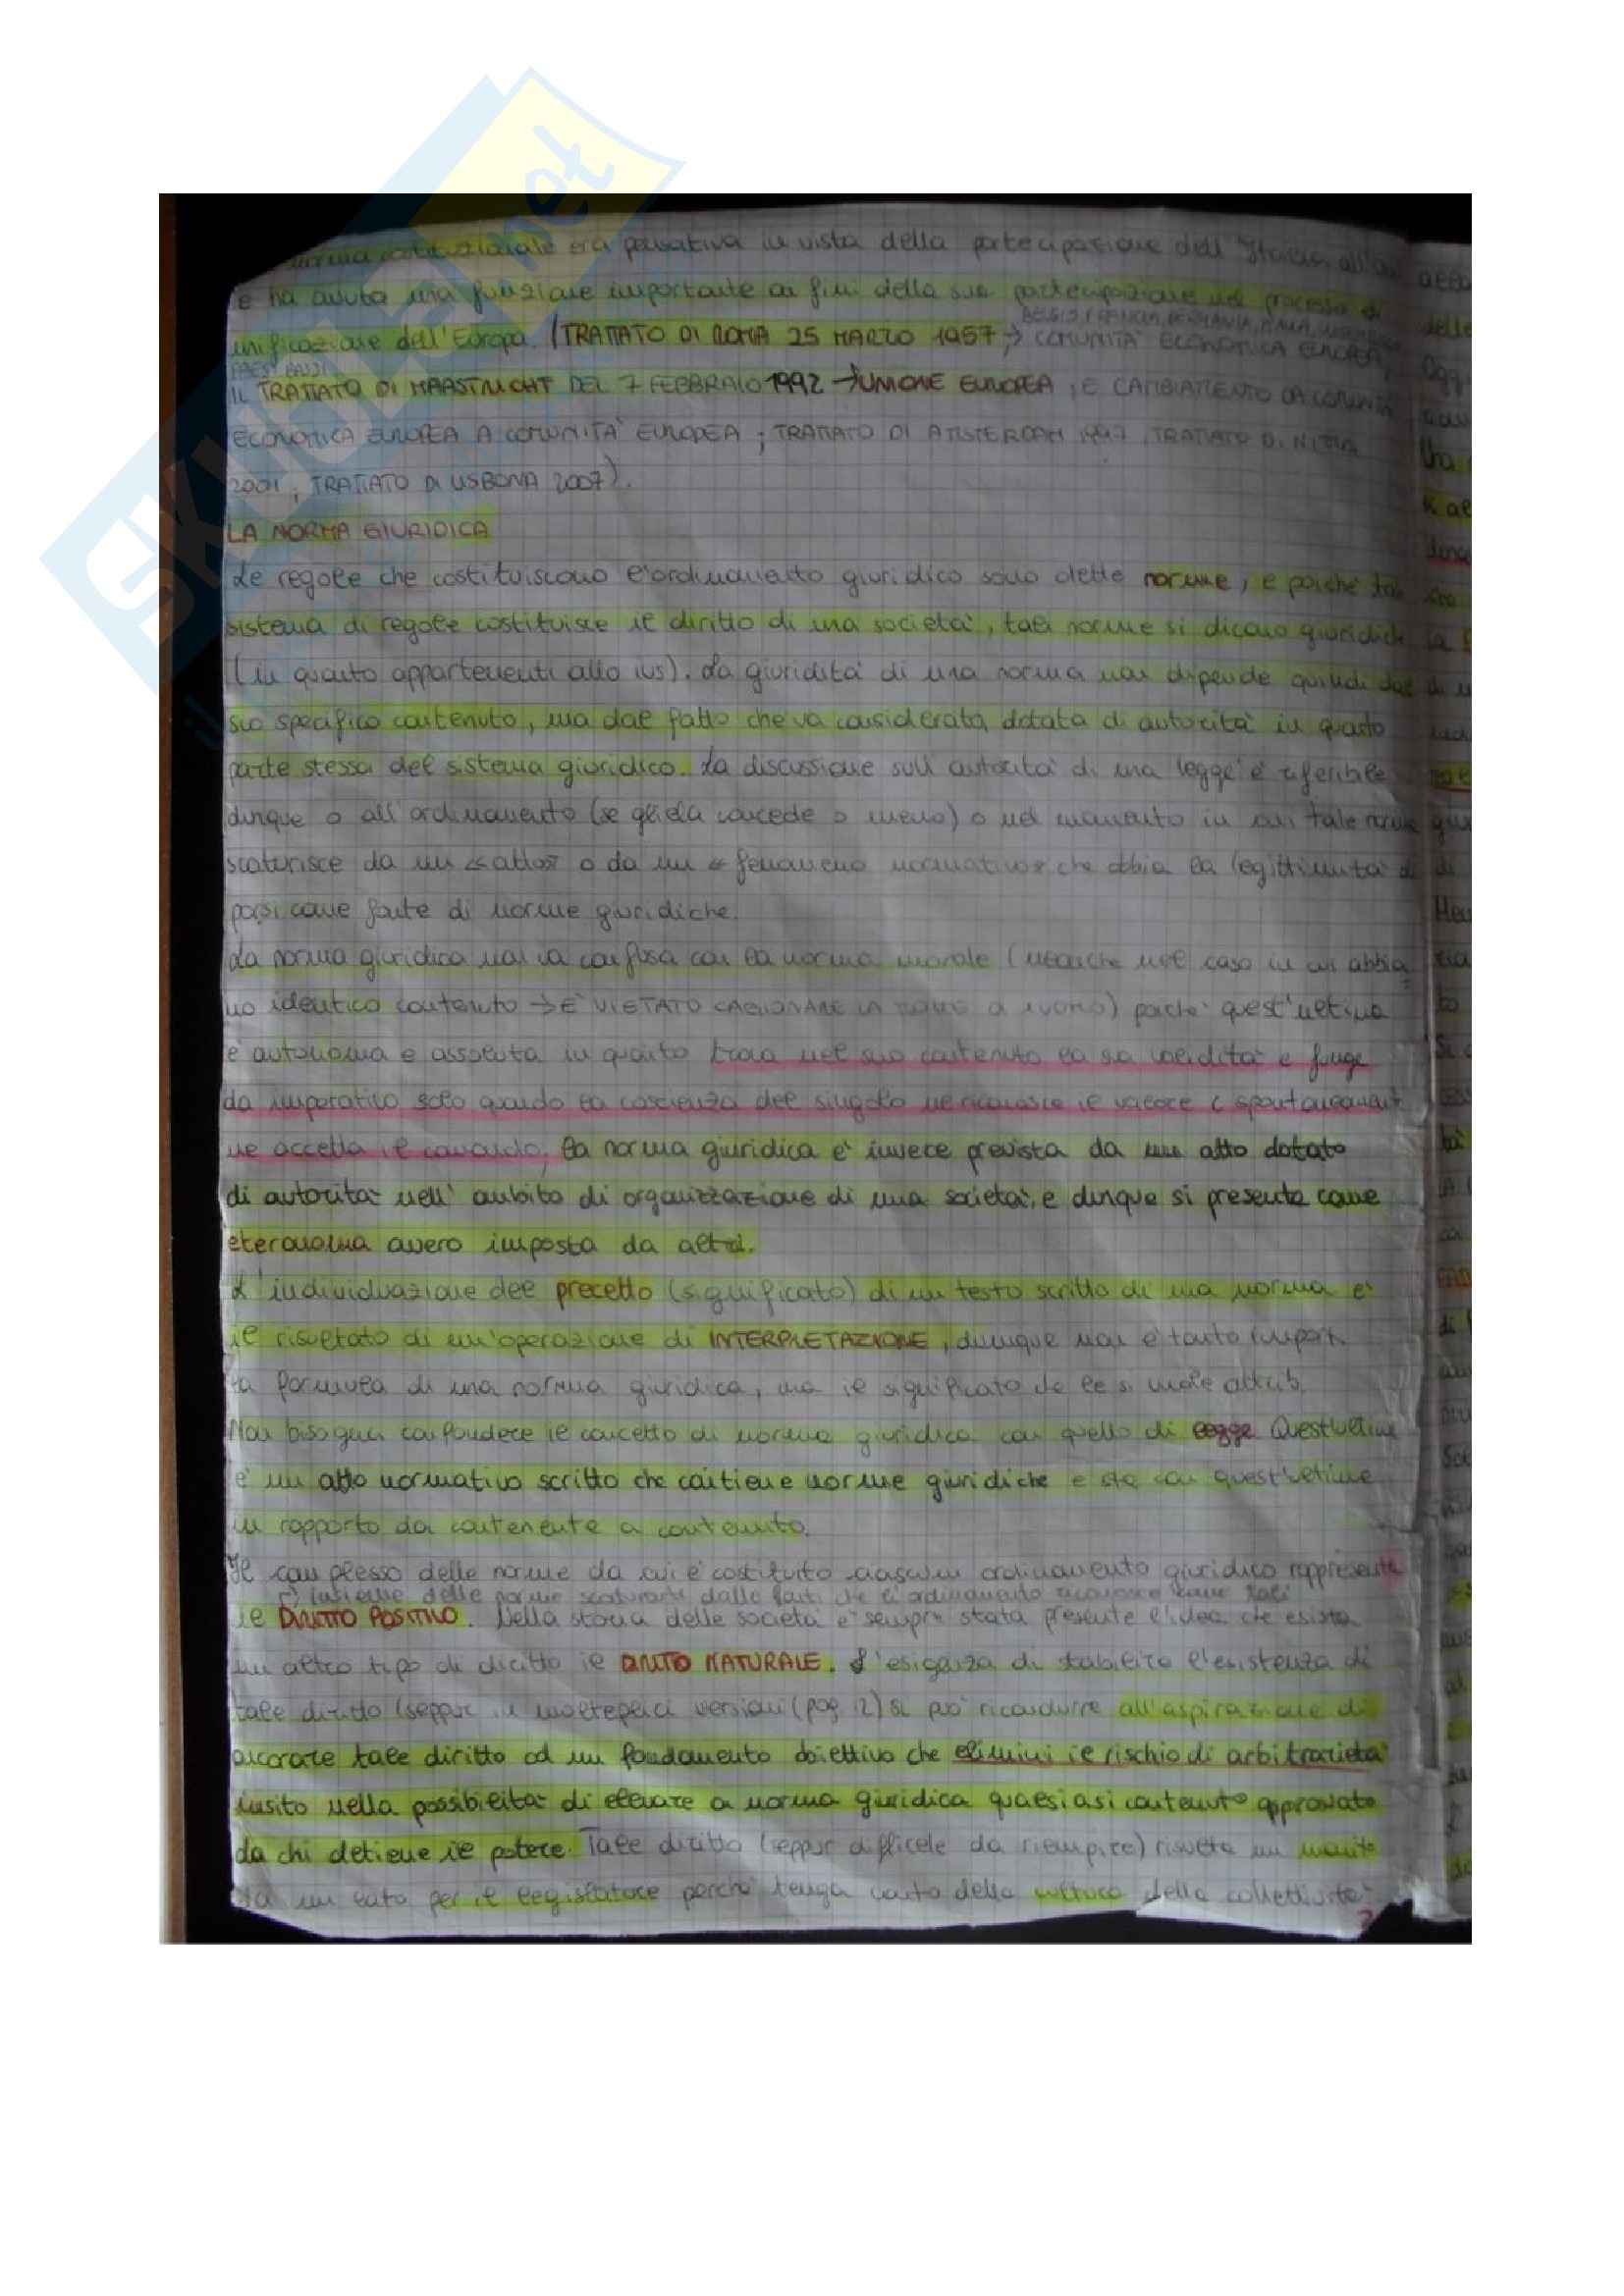 SKUOLA.net
norma costituzionale era pensativa in vista della partecipazione dell'Italia
e ha avuto una funzione importante ai fini della sua partecipazione nel processo di
BELGIO, FRANCIA, GERMANIA, ITALIA,
unificazione dell'Europa. (TRATTATO DI ROMA 25 MARZO 1957 → COMUNITA' ECONOMICA EUROPEA,
PAESI BASSI
IL TRATTATO DI MAASTRICHT DEL 7 FEBBRAIO 1992 → UNIONE EUROPEA, E CAMBIAMENTO DA COMUNITA'
ECONOMICA EUROPEA A COMUNITA' EUROPEA; TRATTATO DI AMSTERDAM 1997, TRATTATO DI NIZZA
2001, TRATTATO DI LISBONA 2007).
LA NORMA GIURIDICA
Le regole che costituiscono l'ordinamento giuridico sono dette norme, e poichè tale
sistema di regole costituisce il diritto di una società, tali norme si dicono giuridiche
(in quanto appartenenti allo ius). La giuridità di una norma non dipende quindi dal
suo specifico contenuto, ma dal fatto che va considerata dotata di autorità in quanto
parte stessa del sistema giuridico. La discussione sull'autorità di una legge è riferibile
dunque o all'ordinamento (se gliela concede o meno) o nel momento in cui tale norma
scaturisce da un «atto» o da un «fenomeno normativo» che abbia la legittimità di
porsi come fonte di norme giuridiche.
La norma giuridica non va confusa con la norma morale (neanche nel caso in cui abbia
no identico contenuto → E' VIETATO CAGIONARE LA MORTE A UOMO) poichè quest'ultima
è autonoma e assoluta in quanto trova nel suo contenuto la sua validità e funge
da imperativo solo quando la coscienza del singolo ne riconosce il valore e spontaneamente
ne accetta il comando, la norma giuridica è invece prevista da un atto dotato
di autorità nell'ambito di organizzazione di una società, e dunque si presenta come
eteronoma ovvero imposta da altri.
L'individuazione del precetto (significato) di un testo scritto di una norma è
il risultato di un'operazione di INTERPRETAZIONE, dunque non è tanto import.
la formula di una norma giuridica, ma il significato che le si vuole attrib.
Non bisogna confondere il concetto di norma giuridica con quello di legge. Quest'ultima
è un atto normativo scritto che contiene norme giuridiche e sta con quest'ultime
in rapporto da contenente a contenuto.
Il complesso delle norme da cui è costituito ciascun ordinamento giuridico rappresenta
→ insieme delle norme scaturanti dalle fonti che l'ordinamento riconosce come tali
il DIRITTO POSITIVO. Nella storia delle società è sempre stata presente l'idea che esista
un altro tipo di diritto il DIRITTO NATURALE. L'esigenza di stabilire l'esistenza di
tale diritto (seppur in molteplici versioni (pag 12) si può ricondurre all'aspirazione di
ancorare tale diritto ad un fondamento obiettivo che elimini il rischio di arbitrarietà
insito nella possibilità di elevare a norma giuridica qualsiasi contenuto approvato
da chi detiene il potere. Tale diritto (seppur difficile da riempire) risulta un monito
da un lato per il legislatore perchè tenga conto della cultura della collettività
2